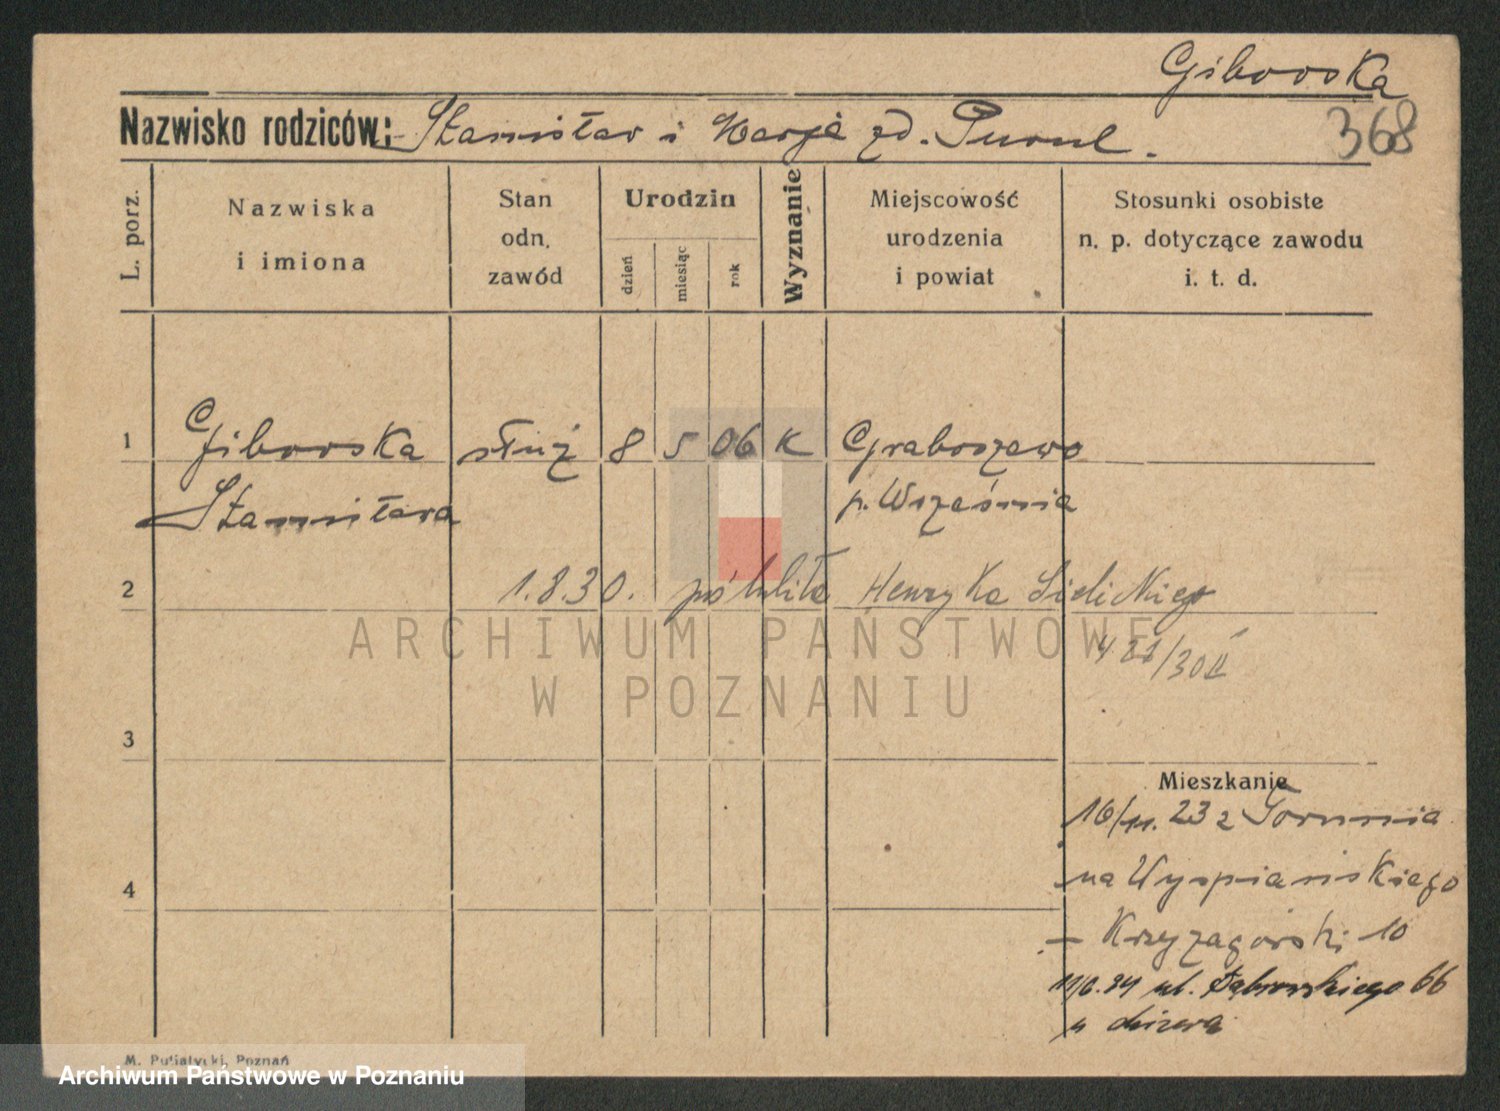 Giborska
368
Nazwisko rodziców: Stanisław i Marja zd.
L. porz.
Nazwiska i imiona
Stan odn. zawód
Urodzin
dzień
miesiąc
rok
Wyznanie
Miejscowość urodzenia i powiat
Stosunki osobiste n. p. dotyczące zawodu i. t. d.
1 Giborska służ 8 5 06 K Graboszewo
Stanisława p. Września
2 1.8.30. poślubiła Henryka Sielickiego
481/30 II
ARCHIWUM PAŃSTWOWE
W POZNANIU
3
Mieszkanie
16/11. 23 z Torunia
4
na Wyspiańskiego
– Krzyżagórski 10
ul. Dąbrowskiego 66
M. Putiatycki, Poznań
Archiwum Państwowe w Poznaniu